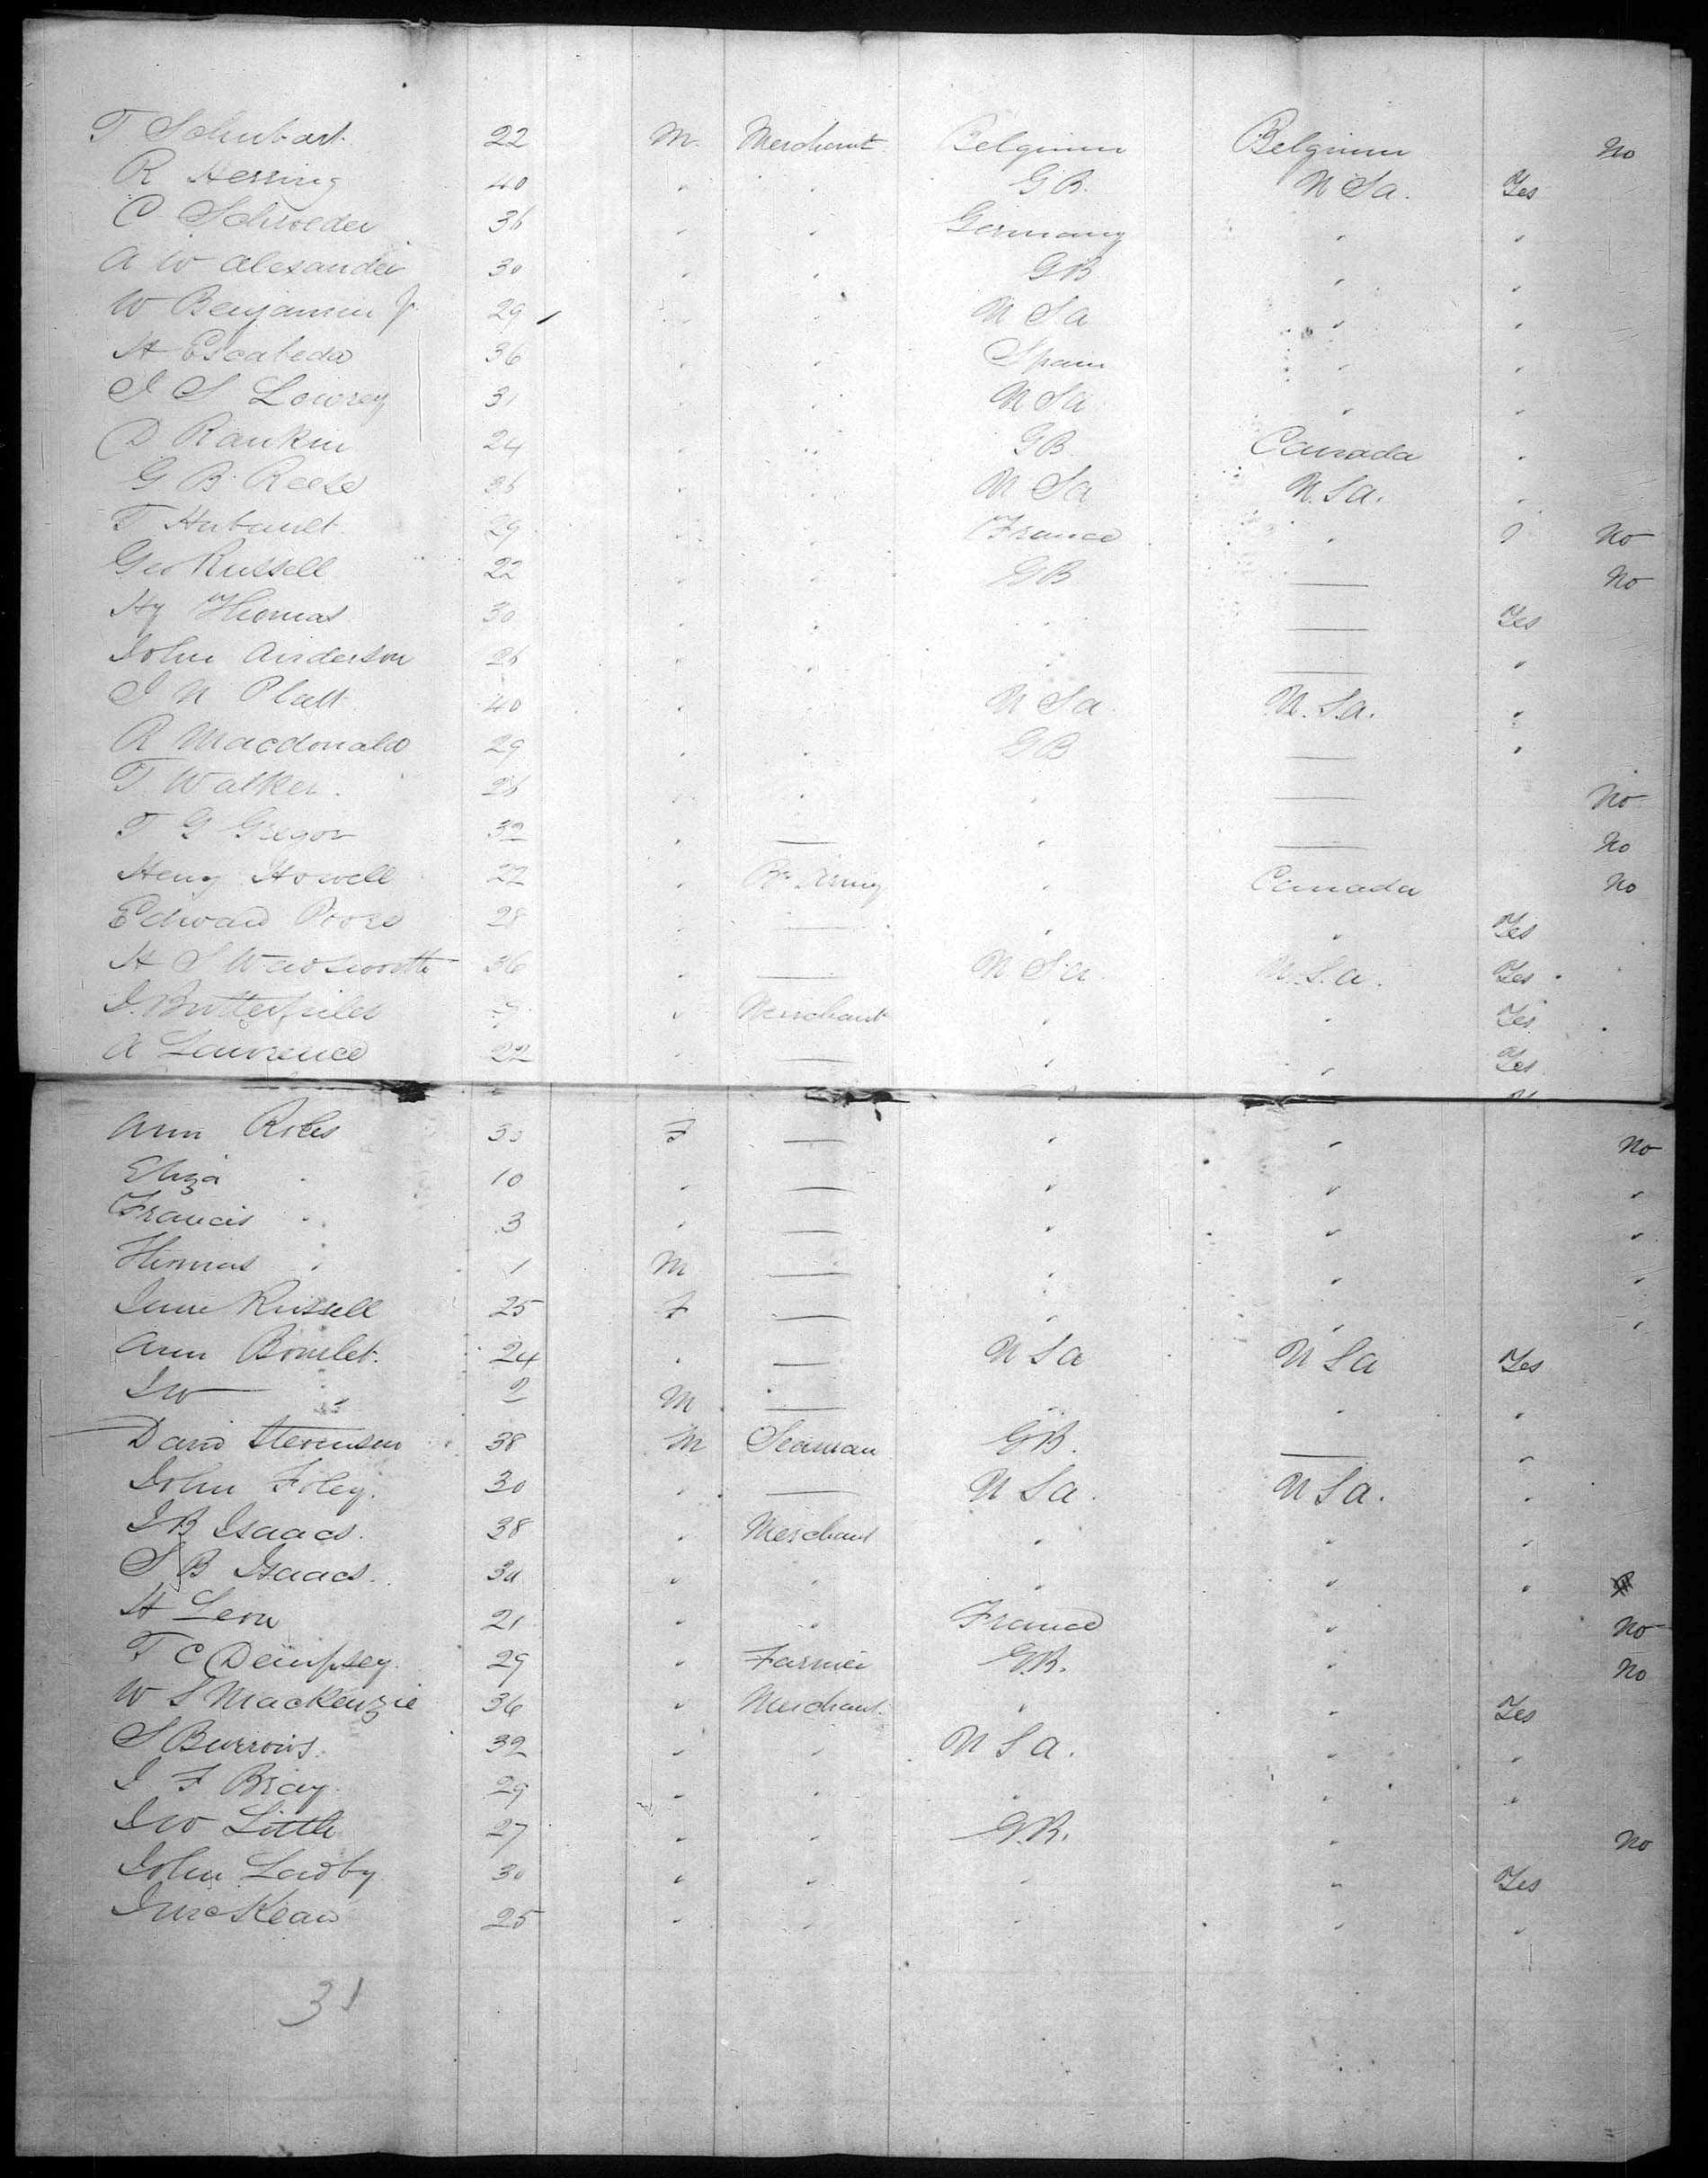 T. Schubart 22 M. Merchant Belgium Belgium No
R Herring 40 " " G B. U Sa. Yes
C Schroeder 36 " " Germany " "
A W Alexander 30 " " G B " "
W Benjamin Jr 29 " " U Sa " "
H Escabeda 36 " " Spain " "
J S Lowrey 31 " " U Sa " "
D Rankin 24 " " G B. Canada "
G B Reese 36 " " U Sa U.Sa. "
T Hubault 29 " " France " No
Geo Russell 22 " " G B — No
Hy Thomas 30 " " " — Yes
John Anderson 26 " " " — "
J N Platt 40 " " U Sa. U.Sa. "
R Macdonald 29 " " G B — "
T. Walker. 26 " " " — No
T G Gregor 32 " — " — No
Henry Howell 22 " Br Army " Canada No
Edward Poore 28 " — " " Yes
H S Wadsworth 36 " — U S a U.S.a. Yes
J. Butterfield " Merchant " " Yes
A Lawrence 22 " — " " Yes
Ann 30 F — " " No
Eliza " 10 " — " " "
Francis " 3 " — " " "
Thomas " 1 M — " " "
Jane Russell 25 F — " " "
Ann 24 " — U S a U S a Yes
J W " 2 M — " "
David Stevenson 38 M Seaman G B. — "
John Foley. 30 " — U S a. U S a. "
J B Isaacs. 38 " Merchant " " "
S B Isaacs. 30 " " " " "
H Leon 21 " " France " No
T C Dempsey. 29 " Farmer G.B. " No
W S Mackenzie 36 " Merchant. " " Yes
S Burrows. 32 " " U S a. " "
J F Bray 29 " " " " "
J W Little 27 " " G.B. " No
John Ladby 30 " " " " Yes
J McKean 25 " " " " "
31